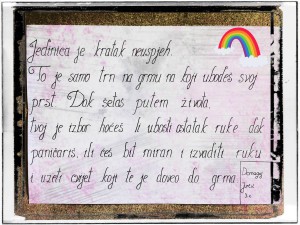 Jedinica je kratak neuspjeh.
To je samo trn na grmu na koji ubodeš svoj
prst. Dok šetaš putem života,
tvoj je izbor hoćeš li ubosti ostatak ruke dok
paničariš, ili ćeš bit miran i izvaditi ruku
i uzeti cvijet koji te je doveo do grma.